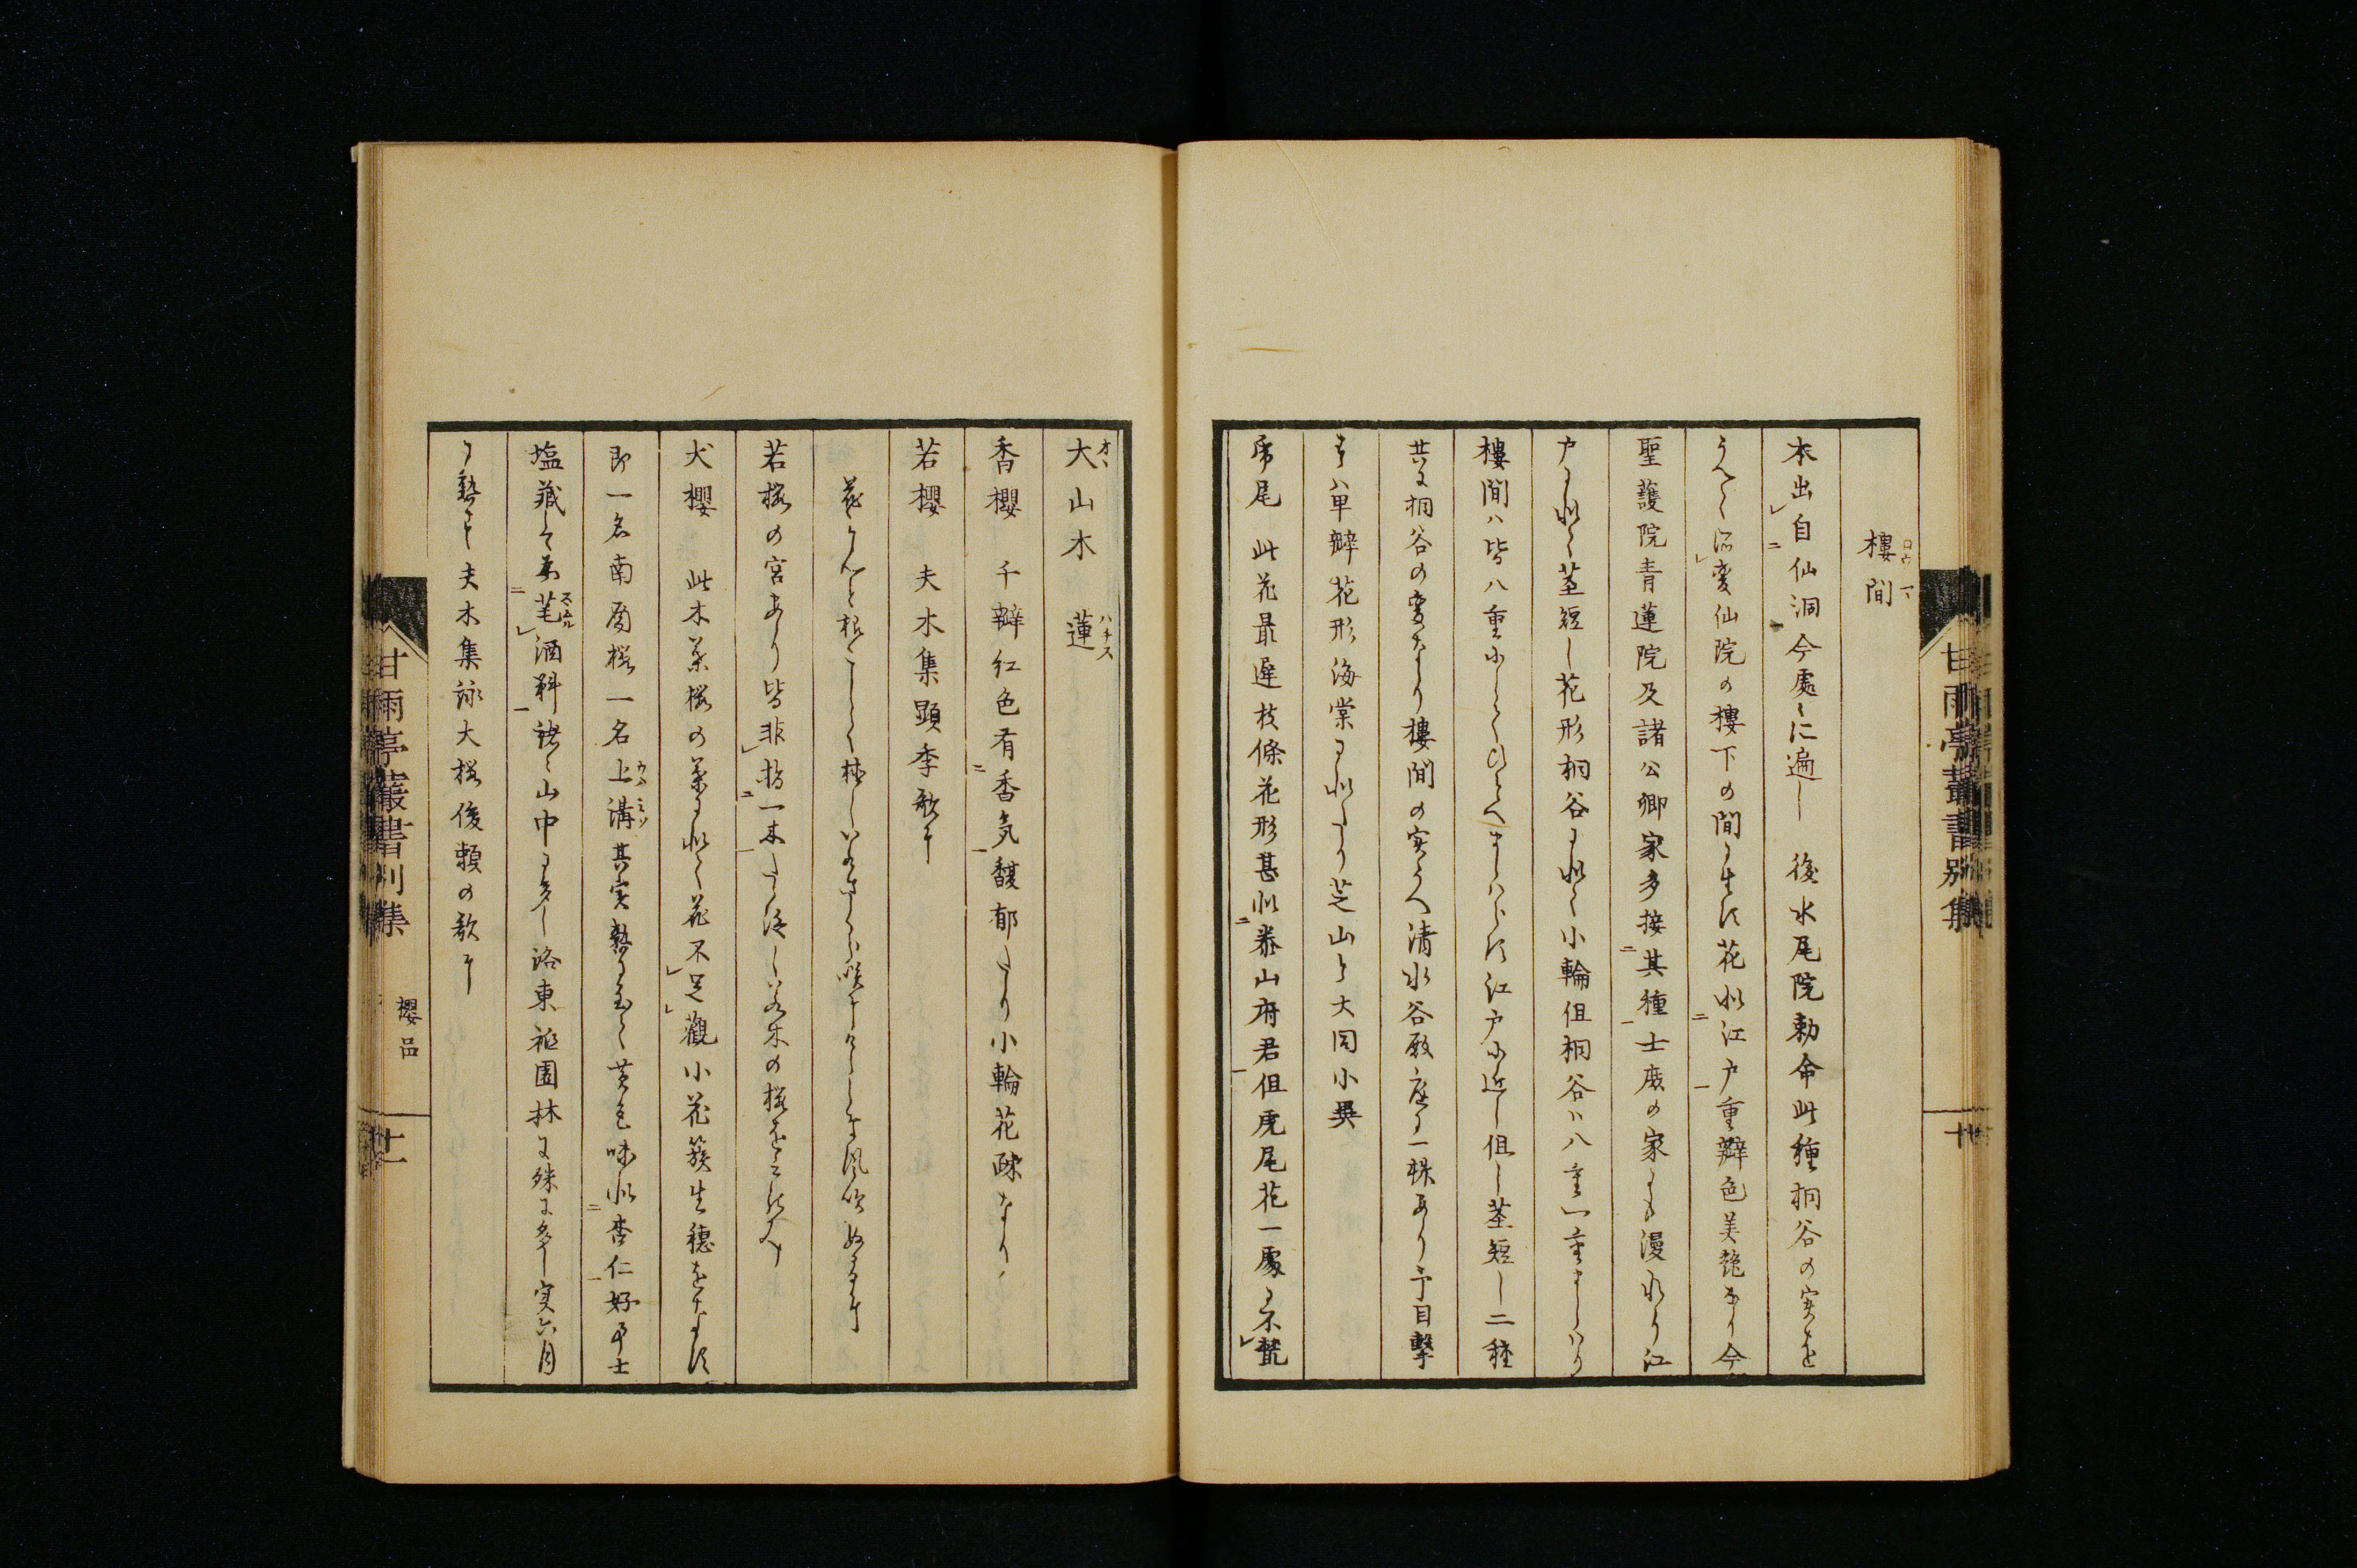 樓間
本出自仙洞今處〻に遍し 後水尾院勅命此種桐谷の実を
うへて返変仙院の樓下の間に生ず花似江戸重辨色美艶なり今
聖護院青蓮院及諸公卿家多接其種士庶の家にも漫れり江
戸に似て茎短し花形桐谷に似て小輪但桐谷ハ八重一重ましハり
樓間ハ皆八重にしてひとへましハらす江戸に近し但し茎短し二種
共に桐谷の変なり樓間の実うへ清水谷殿庭に一株あり予目撃
す八単辨花形海棠に似たり芝山と大同小異
虎尾 此花最遅枝條花形甚似泰山府君但虎尾花一處に不蟄
大山木 蓮
香櫻 千辨紅色有香気馥郁たり小輪花疎なり
若櫻 夫木集顕季歌に
若桜の宮あり皆非指一木
犬櫻 此木葉桜の葉に似て花不足觀小花簇生穂をなす
即一名南殿桜一名上溝其実熟に至て黄色味似杏仁好事士
塩蔵して為芼酒料諸〻山中に多し洛東祇園林に殊に多し実六月
に熟す夫木集詠犬桜俊頼の歌に
甘雨亭叢書別集
櫻品
十一
甘雨亭叢書別集